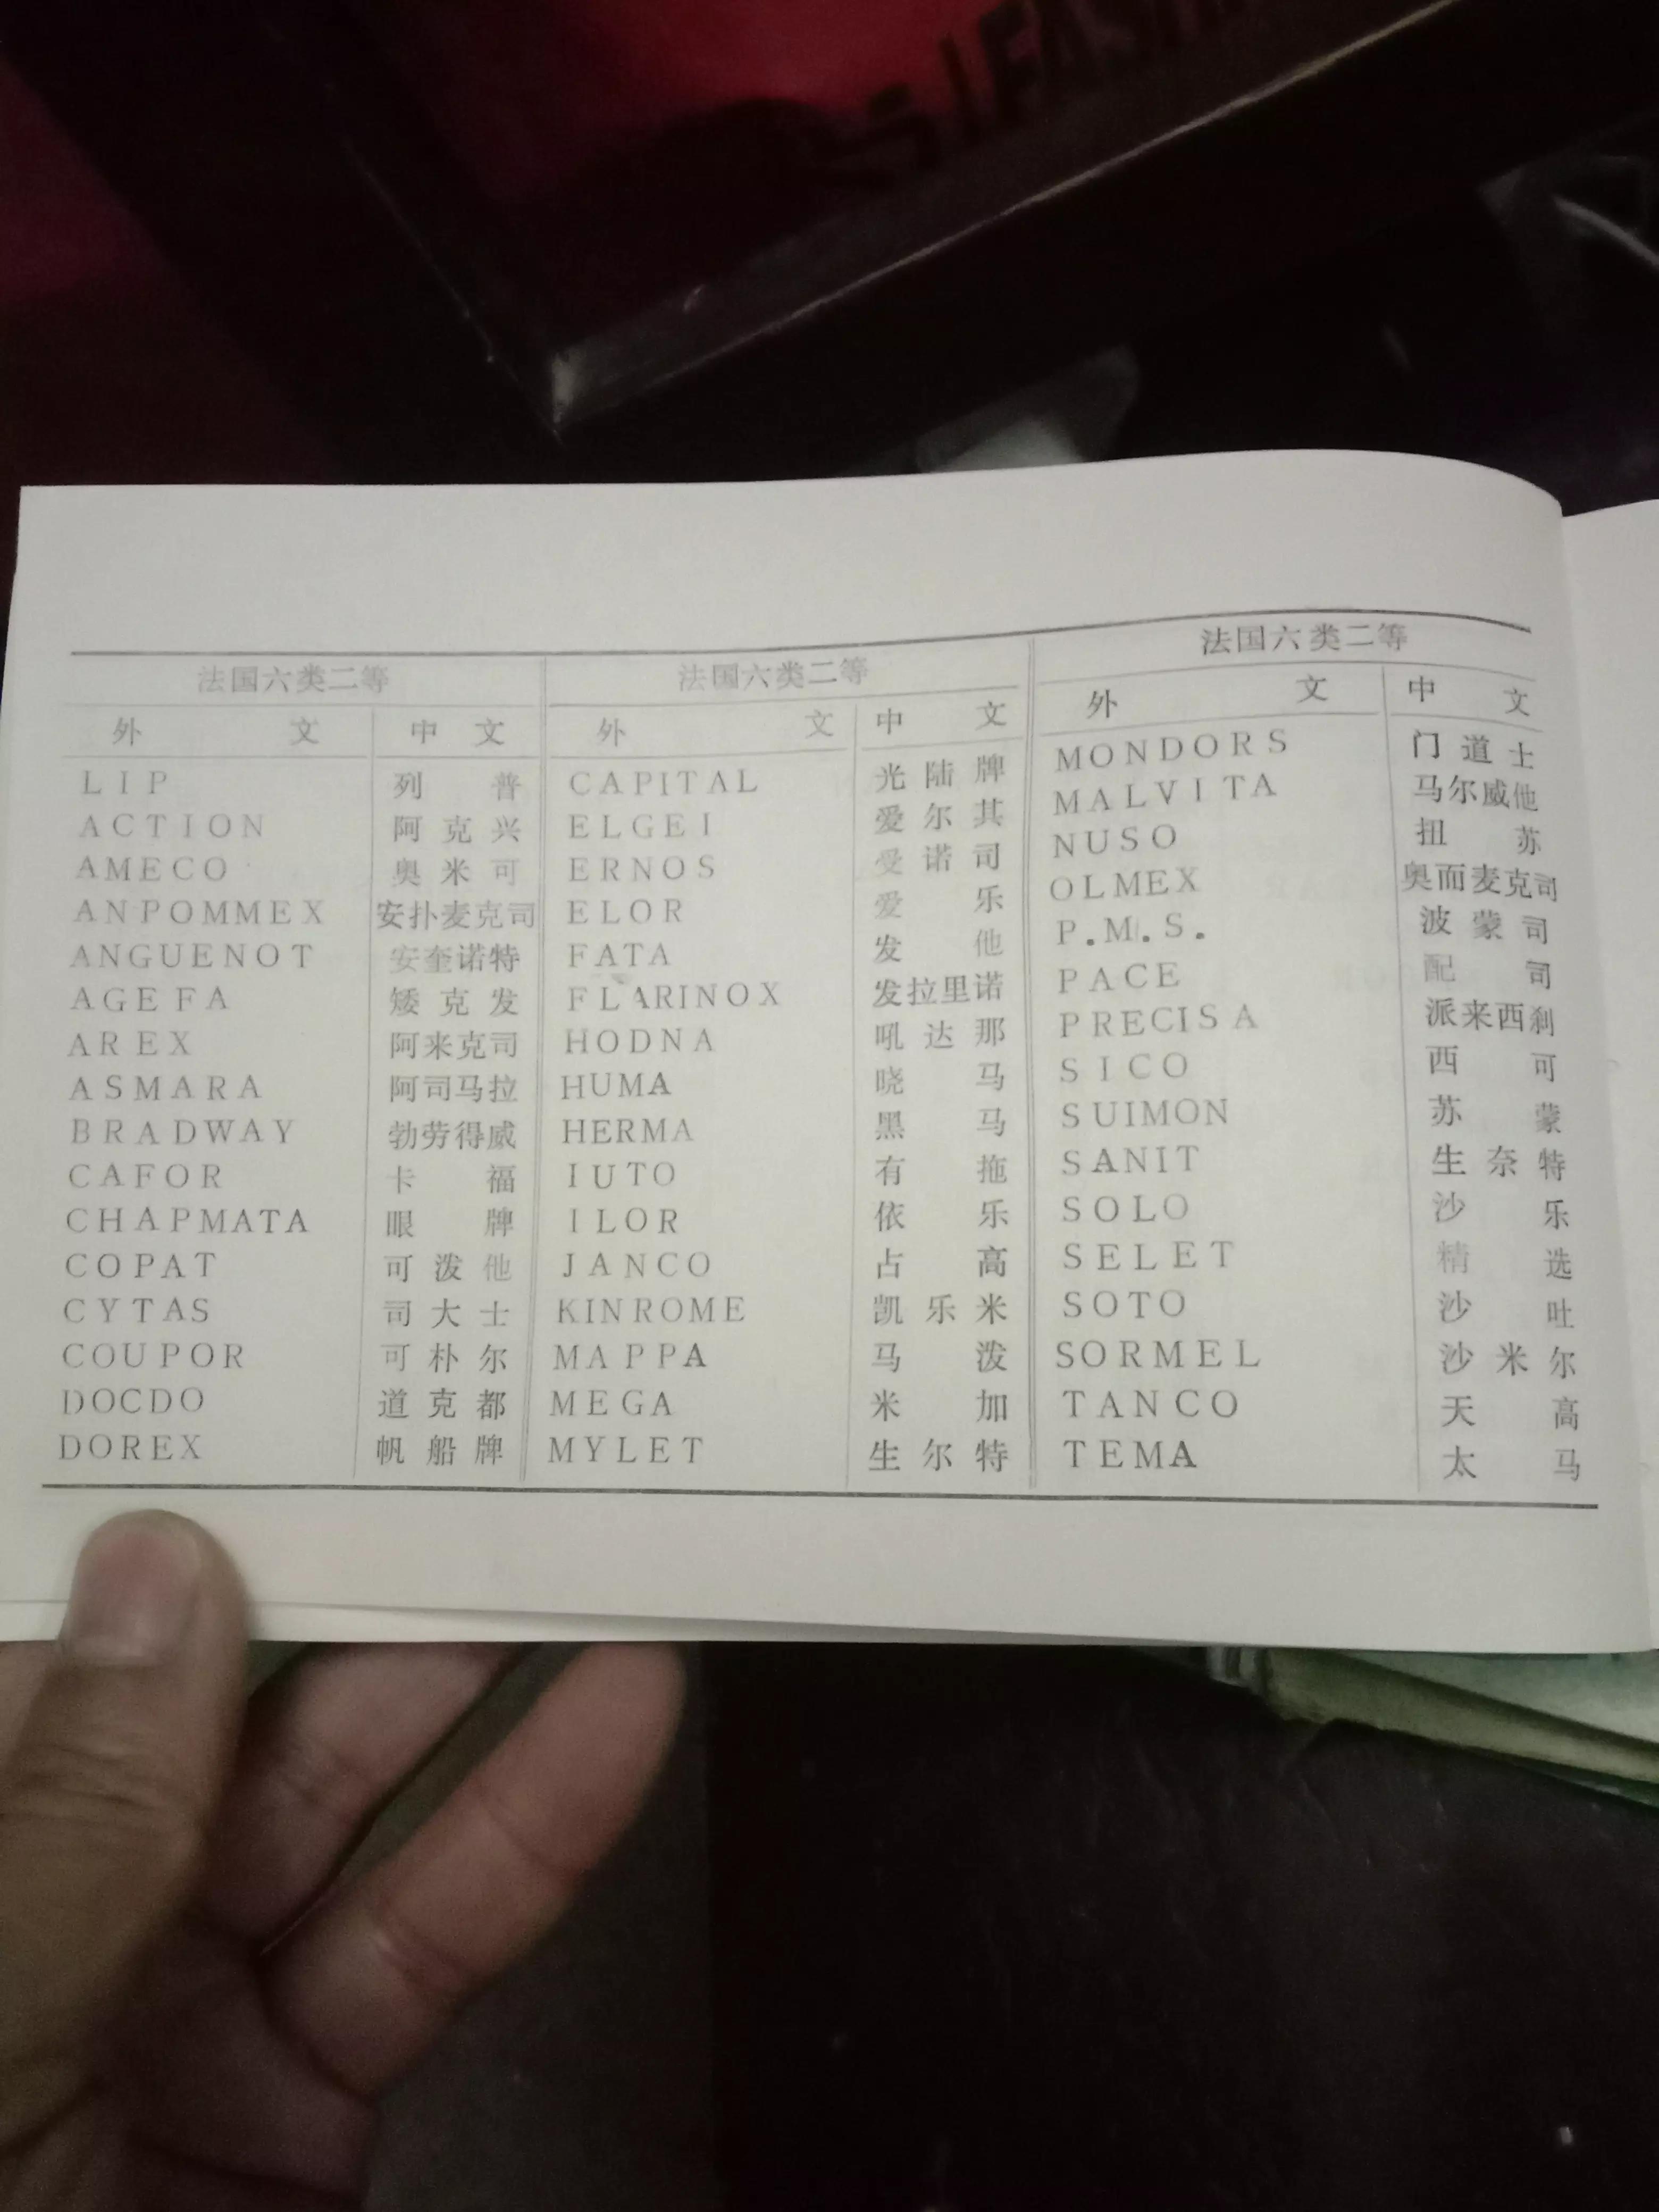 法国六类二等 法国六类二等 法国六类二等
外文 中文 外文 中文 外文 中文
LIP 列普 CAPITAL 光陆牌 MONDORS 门道士
ACTION 阿克兴 ELGEI 爱尔其 MALVITA 马尔威他
AMECO 奥米可 ERNOS 受诺司 NUSO 扭苏
ANPOMMEX 安扑麦克司 ELOR 爱乐 OLMEX 奥而麦克司
ANGUENOT 安奎诺特 FATA 发他 P.M.S. 波蒙司
AGEFA 矮克发 FLARINOX 发拉里诺 PACE 配司
AREX 阿来克司 HODNA 吼达那 PRECISA 派来西刹
ASMARA 阿司马拉 HUMA 晓马 SICO 西可
BRADWAY 勃劳得威 HERMA 黑马 SUIMON 苏蒙
CAFOR 卡福 IUTO 有拖 SANIT 生奈特
CHAPMATA 眼牌 ILOR 依乐 SOLO 沙乐
COPAT 可泼他 JANCO 占高 SELET 精选
CYTAS 司大士 KINROME 凯乐米 SOTO 沙吐
COUPOR 可朴尔 MAPPA 马泼 SORMEL 沙米尔
DOCDO 道克都 MEGA 米加 TANCO 天高
DOREX 帆船牌 MYLET 生尔特 TEMA 太马